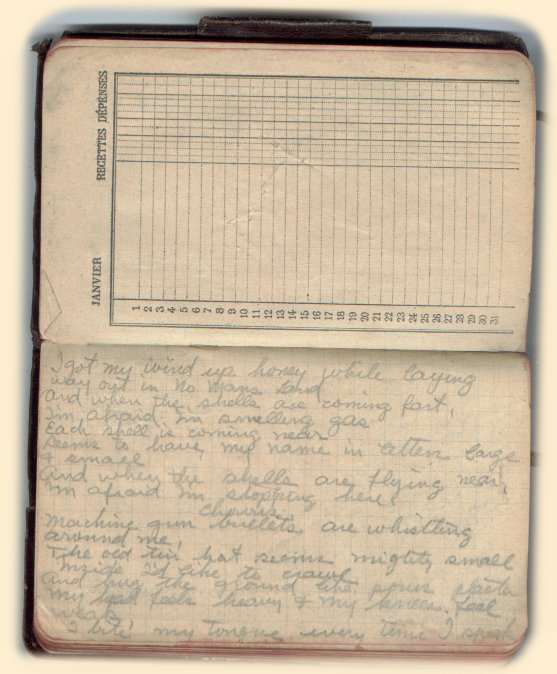 JANVIER RECETTES DÉPENSES
1
2
3
4
5
6
7
8
9
10
11
12
13
14
15
16
17
18
19
20
21
22
23
24
25
26
27
28
29
30
31
I got my wind up honey while laying
way out in No Mans Land
and when the shells are coming fast,
I'm afraid I'm smelling gas
Each shell is coming near
seems to have my name in letters large
& small
And when the shells are flying near,
I'm afraid I'm stopping here.
Chorus
Machine gun bullets are whistling
around me,
The old tin hat seems mighty small
Inside I'd like to crawl
and hug the ground like porus plaster
My head feels heavy & my knees feel
weak
I bite my tongue every time I speak